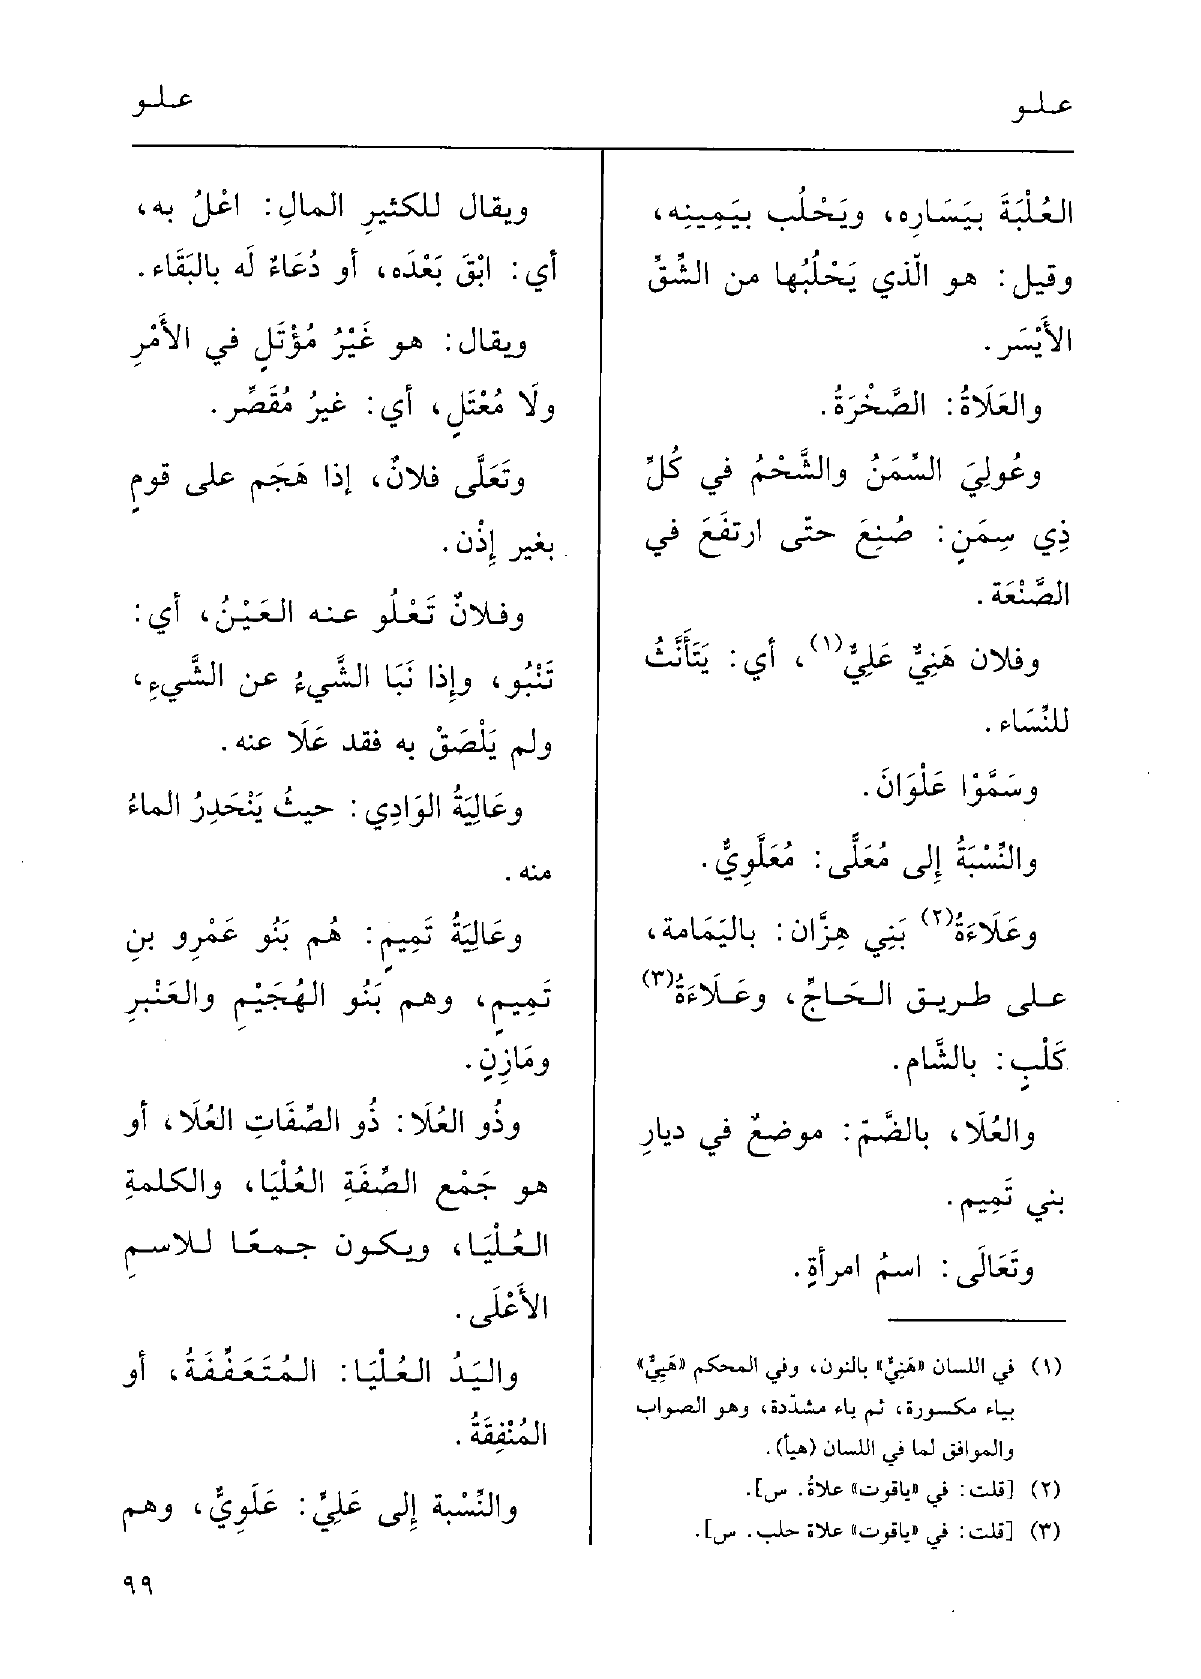 علو
علو
العُلْبَةَ بيَسَارِه، ويَحْلُب بيَمِينِه،
وقيل: هو الّذي يَحْلُبُها من الشِّقِّ
الأَيْسَر.
والعَلَاةُ: الصَّخْرَةُ.
وعُولِيَ السِّمَنُ والشَّحْمُ في كُلِّ
ذِي سِمَنٍ: صُنِعَ حتّى ارتفَعَ في
الصَّنْعَة.
وفلان هَنِيٌّ عَلِيٌّ(١)، أي: يَتَأَنَّثُ
للنِّسَاء.
وسَمَّوْا عَلْوَانَ.
والنِّسْبَةُ إِلى مُعَلَّى: مُعَلَّوِيٌّ.
وعَلَاءَةُ(٢) بَنِي هِزَّان: باليَمَامة،
على طريق الحَاجِّ، وعَلَاءَةُ(٣)
كَلْبٍ: بالشَّام.
والعُلَا، بالضَّمّ: موضعٌ في ديارِ
بني تَمِيم.
وتَعَالَى: اسمُ امرأةٍ.
(١) في اللسان «هَنِيٌّ» بالنون، وفي المحكم «هَيِيٌّ»
بياء مكسورة، ثم ياء مشدّدة، وهو الصواب
والموافق لما في اللسان (هيأ).
(٢) [قلت: في «ياقوت» علاةُ. س].
(٣) [قلت: في «ياقوت» علاة حلب. س].
ويقال للكثيرِ المالِ: اعْلُ به،
أي: ابْقَ بَعْدَه، أو دُعَاءٌ لَه بالبَقَاء.
ويقال: هو غَيْرُ مُؤْتَلٍ في الأَمْرِ
ولَا مُعْتَلٍ، أي: غيرُ مُقَصِّر.
وتَعَلَّى فلانٌ، إذا هَجَم على قومٍ
بغير إِذْن.
وفلانٌ تَعْلُو عنه العَيْنُ، أي:
تَنْبُو، وإذا نَبَا الشَّيءُ عن الشَّيءِ،
ولم يَلْصَقْ به فقد عَلَا عنه.
وعَالِيَةُ الوَادِي: حيثُ يَنْحَدِرُ الماءُ
منه.
وعَالِيَةُ تَمِيمٍ: هُم بَنُو عَمْرِو بنِ
تَمِيمٍ، وهم بَنُو الهُجَيْمِ والعَنْبرِ
ومَازِنٍ.
وذُو العُلَا: ذُو الصِّفَاتِ العُلَا، أو
هو جَمْع الصِّفَةِ العُلْيَا، والكلمةِ
العُلْيَا، ويكون جمعًا للاسمِ
الأَعْلَى.
واليَدُ العُلْيَا: المُتَعَفِّفَةُ، أو
المُنْفِقَةُ.
والنِّسْبة إِلى عَلِيٍّ: عَلَوِيٌّ، وهم
٩٩